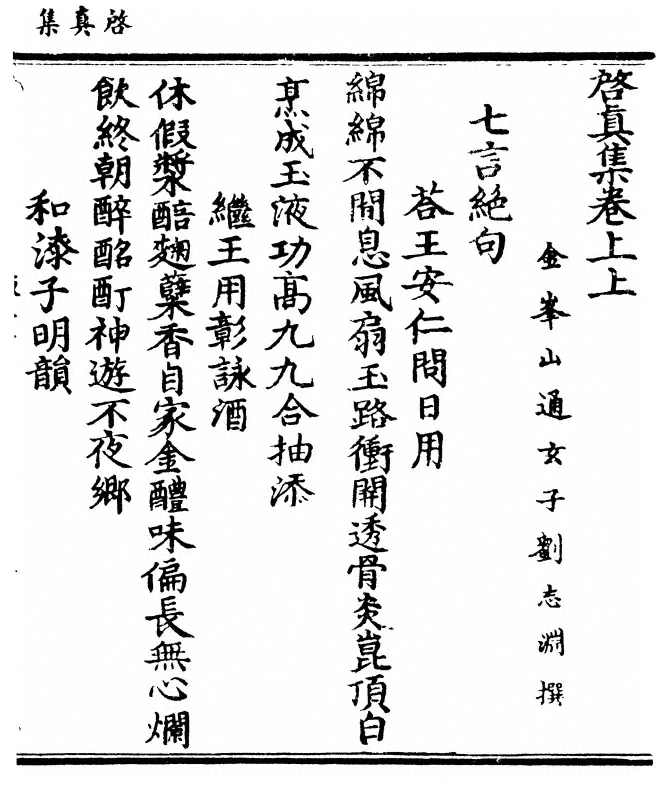 啓真集
啓眞集卷上上
金峯山通玄子劉志淵撰
七言絶句
荅王安仁問日用
綿綿不間息風扇玉路衝開透骨炎崑頂白
烹成玉液功髙九九合抽添
繼王用彰詠酒
休假漿醅麹糵香自家金醴味偏長無心爛
飲終朝醉酩酊神遊不夜鄉
和漆子明韻